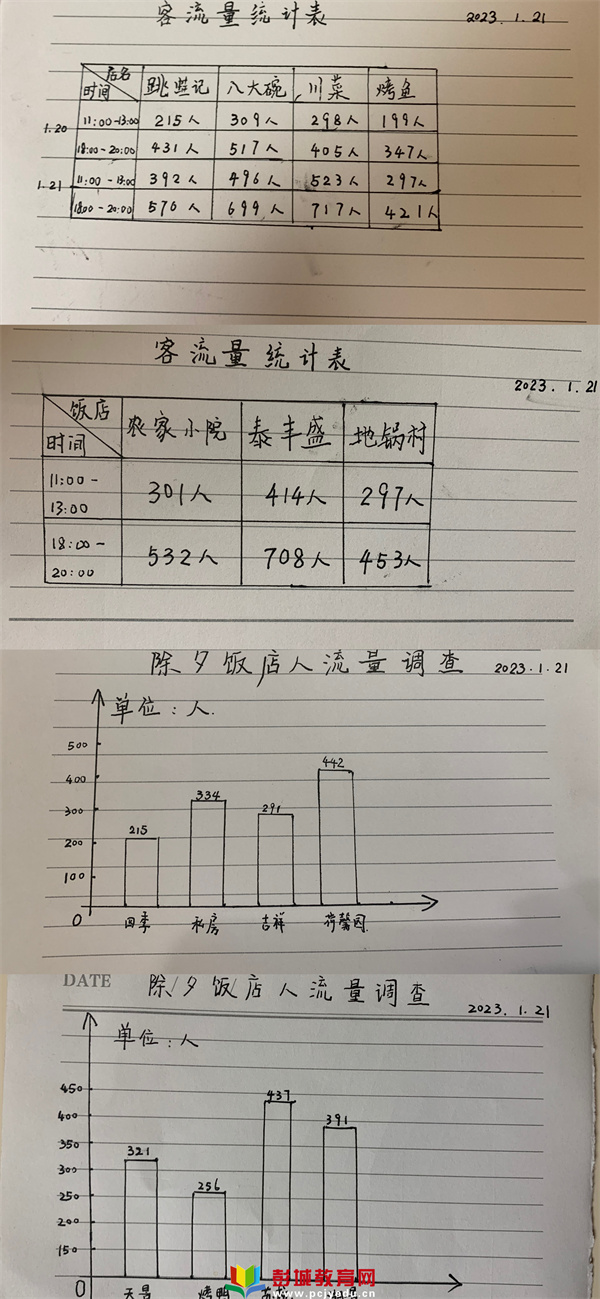 客流量统计表 2023.1.21
店名 时间 跳些记 八大碗 川菜 烤鱼
1.20 11:00-13:00 215人 309人 298人 199人
18:00-20:00 431人 517人 405人 347人
1.21 11:00-13:00 392人 496人 523人 297人
18:00-20:00 576人 699人 717人 421人
客流量统计表
2023.1.21
饭店 时间 农家小院 泰丰盛 地锅村
11:00-13:00 301人 414人 297人
18:00-20:00 532人 708人 453人
除夕饭店人流量调查 2023.1.21
单位:人.
500
400
300
200
100
0
215 334 291 442
四季 私房 吉祥 荷馨园
DATE 除夕饭店人流量调查
2023.1.21
单位:人
450
400
350
300
250
200
150
0
321 256 437 391
天景 烤鸭
彭城教育网
www.pcjyedu.cn